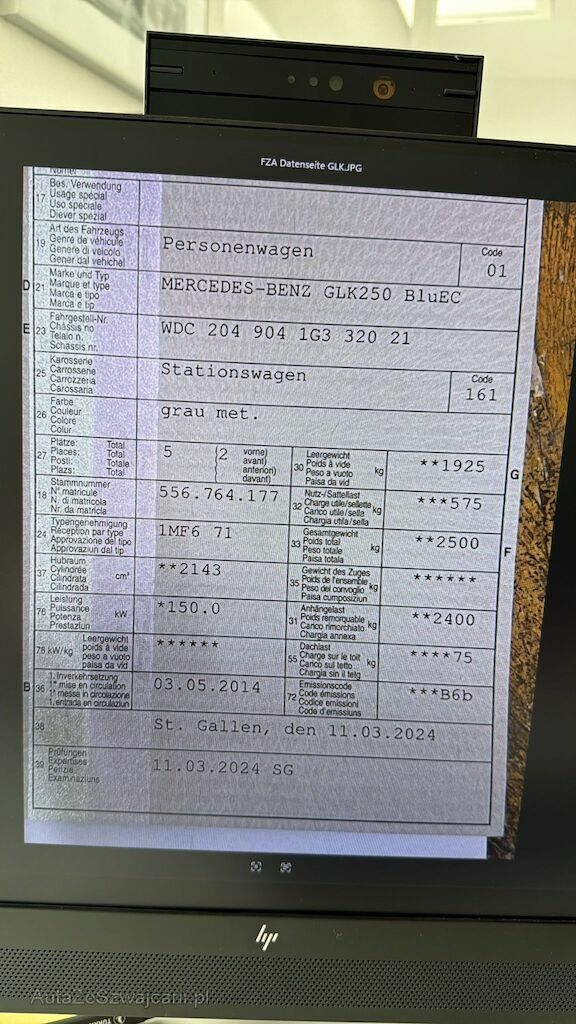 FZA Datenseite GLK.JPG
17 Bes. Verwendung
Usage spécial
Uso speciale
Diever spezial
19 Art des Fahrzeugs
Genre de véhicule
Genere di veicolo
Gener dal vehichel
Personenwagen
Code
01
D 21 Marke und Typ
Marque et type
Marca e tipo
Marca e tip
MERCEDES-BENZ GLK250 BluEC
E 23 Fahrgestell-Nr.
Châssis no
Telaio n.
Schassis nr.
WDC 204 904 1G3 320 21
25 Karosserie
Carrosserie
Carrozzeria
Carossaria
Stationswagen
Code
161
26 Farbe
Couleur
Colore
Colur
grau met.
27 Plätze: Total
Places: Total
Posti: Totale
Plazs: Total
5 (2 vorne)
avant)
anteriori)
davant)
30 Leergewicht
Poids à vide
Peso a vuoto
Paisa da vid
kg
**1925
G
18 Stammnummer
N° matricule
N. di matricola
Nr. da matricla
556.764.177
32 Nutz-/Sattellast
Charge utile/sellette
Carico utile/sella
Chargia utila/sella
kg
***575
24 Typengenehmigung
Réception par type
Approvazione del tipo
Approvaziun dal tip
1MF6 71
33 Gesamtgewicht
Poids total
Peso totale
Paisa totala
kg
**2500
F
37 Hubraum
Cylindrée
Cilindrata
Cilindrada
cm³
**2143
35 Gewicht des Zuges
Poids de l'ensemble
Peso del convoglio
Paisa cumposiziun
kg
******
76 Leistung
Puissance
Potenza
Prestaziun
kW
*150.0
31 Anhängelast
Poids remorquable
Carico rimorchiato
Chargia annexa
kg
**2400
78 kW/kg Leergewicht
poids à vide
peso a vuoto
paisa da vid
******
55 Dachlast
Charge sur le toit
Carico sul tetto
Chargia sin il tetg
kg
****75
B 36 1. Inverkehrsetzung
1re mise en circulation
1a messa in circolazione
1. entrada en circulaziun
03.05.2014
72 Emissionscode
Code émissions
Codice emissioni
Code d'emissiuns
***B6b
38
St. Gallen, den 11.03.2024
39 Prüfungen
Expertises
Perizie
Examinaziuns
11.03.2024 SG
hp
AutaZeSzwajcarii.pl